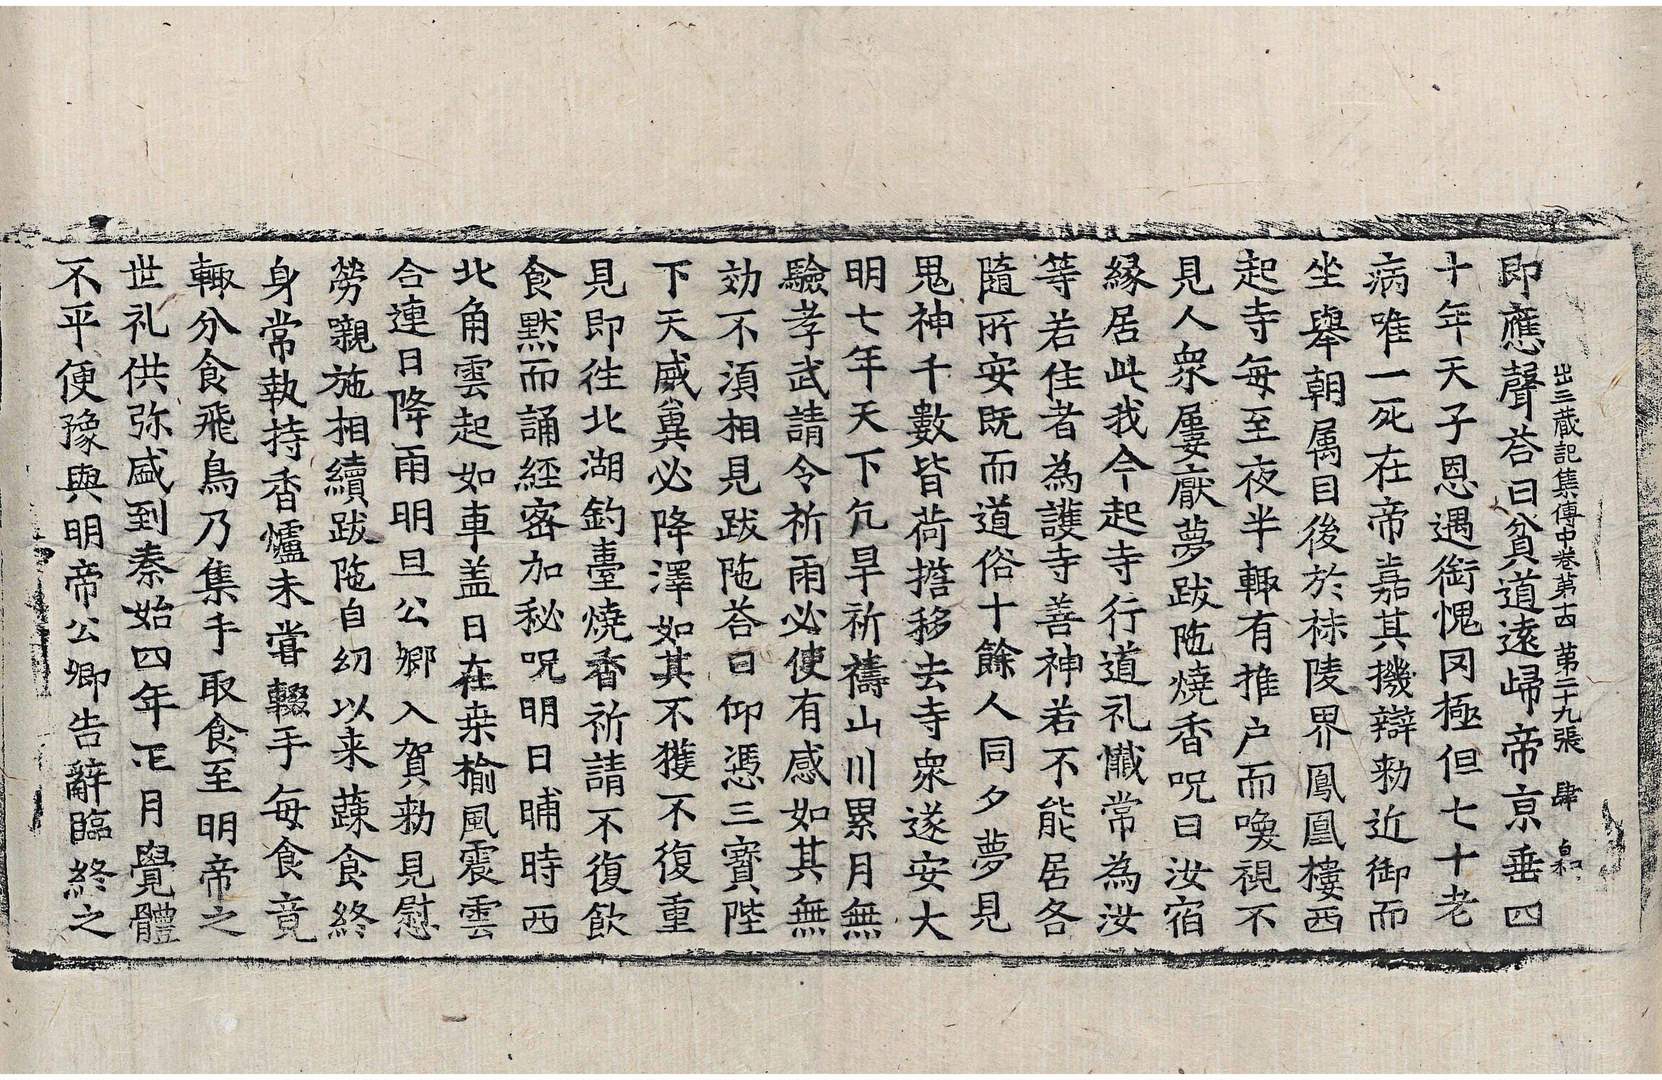 出三蔵記集傳中卷第十四 第二十九張 肆
即應聲荅曰貧道遠歸帝京垂四
十年天子恩遇銜愧罔極但七十老
病唯一死在帝嘉其機辯勑近御而
坐舉朝属目後於秣陵界鳳凰樓西
起寺每至夜半輙有推户而喚視不
見人衆屢厭夢跋陁燒香呪曰汝宿
緣居此我今起寺行道礼懺常為汝
等若住者為護寺善神若不能居各
隨所安既而道俗十餘人同夕夢見
鬼神千數皆荷擔移去寺衆遂安大
明七年天下亢旱祈禱山川累月無
驗孝武請令祈雨必使有感如其無
効不湏相見跋陁荅曰仰憑三寳陛
下天威冀必降澤如其不獲不復重
見即徃北湖釣臺燒香祈請不復飲
食黙而誦經密加秘呪明日晡時西
北角雲起如車盖日在桒榆風震雲
合連日降雨明旦公卿入賀勑見慰
勞嚫施相續跋陁自㓜以来蔬食終
身常執持香爐未甞輟手每食竟
輙分食飛鳥乃集手取食至明帝之
世礼供弥盛到秦始四年正月覺體
不平便豫與明帝公卿告辭臨終之